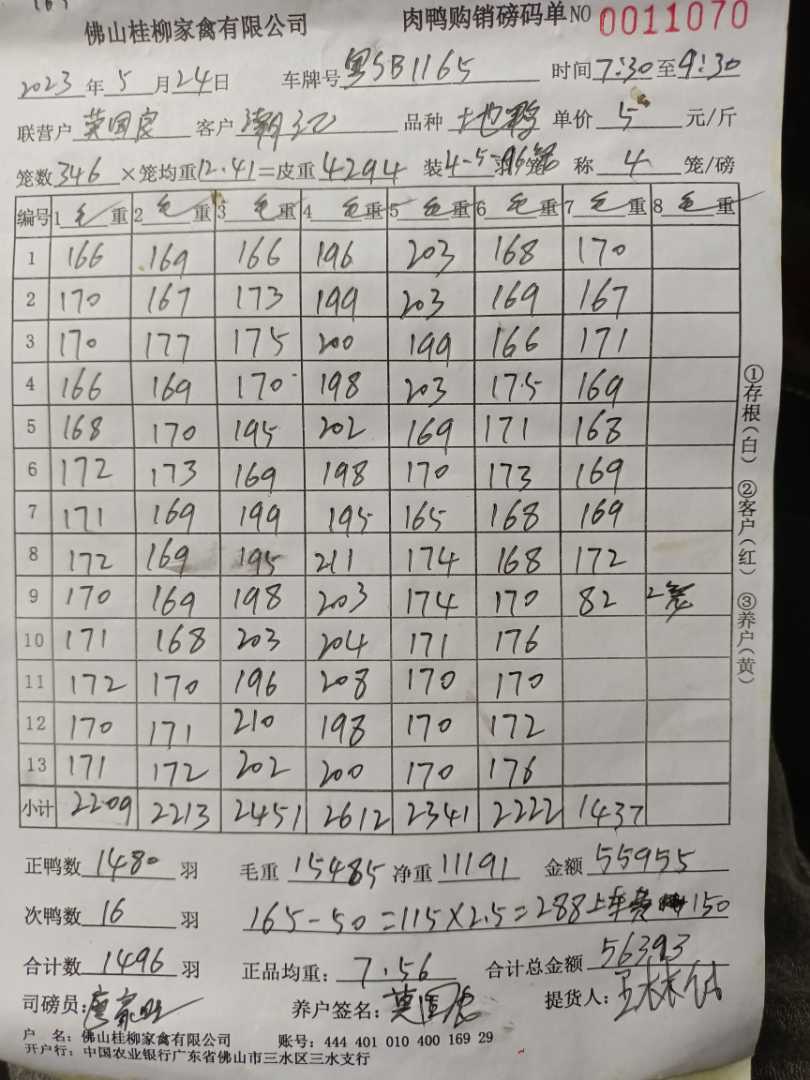 佛山桂柳家禽有限公司 肉鸭购销磅码单 NO 0011070
2023年5月24日 车牌号 粤SB1165 时间 7:30至9:30
联营户 莫国良 客户 潮记 品种 土地鸭 单价 5 元/斤
笼数 346 ×笼均重 12.41=皮重 4294 装 4-5-96 羽/笼 称 4 笼/磅
编号 1 毛 重 2 毛 重 3 毛 重 4 毛 重 5 毛 重 6 毛 重 7 毛 重 8 毛 重
1 166 169 166 196 203 168 170
2 170 167 173 199 203 169 167
3 170 177 175 200 199 166 171
4 166 169 170 198 203 175 169
5 168 170 195 202 169 171 168
6 172 173 169 198 170 173 169
7 171 169 199 195 165 168 169
8 172 169 195 211 174 168 172
9 170 169 198 203 174 170 82 2笼
10 171 168 203 204 171 176
11 172 170 196 208 170 170
12 170 171 210 198 170 172
13 171 172 202 200 170 176
小计 2209 2213 2451 2612 2341 2222 1437
正鸭数 1480 羽 毛重 15485 净重 11191 金额 55955
次鸭数 16 羽 165-50=115×2.5=288 上车费 150
合计数 1496 羽 正品均重: 7.56 合计总金额 56393
司磅员: 养户签名: 莫国良 提货人:
户 名: 佛山桂柳家禽有限公司 账号: 444 401 010 400 169 29
开户行: 中国农业银行广东省佛山市三水区三水支行
①存根(白) ②客户(红) ③养户(黄)